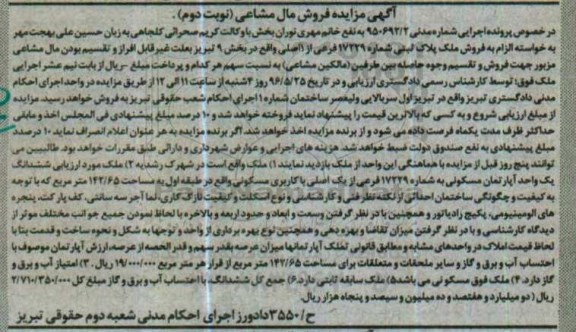 آگهی مزایده فروش مال مشاعی (نوبت دوم).
در خصوص پرونده اجرایی شماره مدنی ۹۵۰۶۹۲/۲ به نفع خانم مهری نوران بخش با وکالت کریم صحرائی کلجاهی به زیان حسین علی بهجت مهر
به خواسته الزام به فروش ملک پلاک ثبتی شماره ۱۷۲۲۹ فرعی از ۱ اصلی واقع در بخش ۹ تبریز بعلت غیر قابل افراز و تقسیم بودن مال مشاعی
مزبور جهت فروش و تقسیم وجوه حاصله بین طرفین (مالکین مشاعی) به نسبت سهم هر کدام و پرداخت مبلغ -ریال از بابت نیم عشر اجرایی
ملک فوق: توسط کارشناس رسمی دادگستری ارزیابی و در تاریخ ۹۶/۵/۲۵ روز ۴شنبه از ساعت ۱۱ الی ۱۲ از طریق مزایده در واحد اجرای احکام
مدنی دادگستری تبریز واقع در تبریز اول سربالایی ولیعصر ساختمان شماره ۱ اجرای احکام شعب حقوقی تبریز به فروش خواهد رسید. مزایده
از مبلغ ارزیابی شروع و به کسی که بالاترین قیمت را پیشنهاد نماید فروخته خواهد شد و ۱۰ درصد مبلغ پیشنهادی فی المجلس اخذ و مابقی
حداکثر ظرف مدت یکماه فرصت داده می شود و از برنده مزایده اخذ خواهد شد. اگر برنده مزایده به هر عنوان اعلام انصراف نماید ۱۰ درصد
مبلغ پیشنهادی به نفع صندوق دولت ضبط خواهد شد. هزینه های اجرایی و عوارض شهرداری و دارائی طبق مقررات خواهد بود. طالبیین می
توانند پنج روز قبل از مزایده با هماهنگی این واحد از ملک بازدید نمایند ۱) ملک واقع است در شهرک رشدیه ۲) ملک مورد ارزیابی ششدانگ
یک واحد آپارتمان مسکونی به شماره ۱۷۲۲۹ فرعی از یک اصلی با کاربری مسکونی واقع در طبقه اول به مساحت ۱۴۲/۶۵ متر مربع که با توجه
به کیفیت و چگونگی ساختمان احداثی از نکته نظر فنی و کارشناسی و نوع اسکلت و کیفیت نازک کاری نما آجر سه سانتی، کف پارکت، پنجره
های آلومینیومی، پکیج رادیاتور و همچنین با در نظر گرفتن وسعت و ابعاد و حدود اربعه و بالاخره با لحاظ نمودن جمیع جوانب مختلف موثر از
دیدگاه کارشناسی و با در نظر گرفتن میزان تقاضا و بهره دهی و همچنین نوع بهره برداری از واحد و توجها به شکل و نحوه ساخت و قدمت بنا با
لحاظ قیمت املاک در واحدهای مشابه و مطابق قانونی تملک آپارتمانها میزان عرصه بقدر سهم و قدر الحصه از عرصه، ارزش آپارتمان موصوف با
احتساب آب و برق و گاز و سایر ملحقات و متعلقات برای مساحت ۱۴۲/۶۵ متر مربع از قرار هر متر مربع ۱۹/۰۰۰/۰۰۰ ریال. ۳) امتیاز آب و برق و
گاز دارد. ۴) ملک فوق مسکونی می باشد ۵) ملک سابقه ثبتی دارد. ۶) جمع کل ششدانگ، با احتساب آب و برق و گاز مبلغ کل ۲/۷۱۰/۳۵۰/۰۰۰
ریال (دو میلیارد و هفتصد و ده میلیون و سیصد و پنجاه هزار ریال.
ح/۳۵۵۰ دادورز اجرای احکام مدنی شعبه دوم حقوقی تبریز